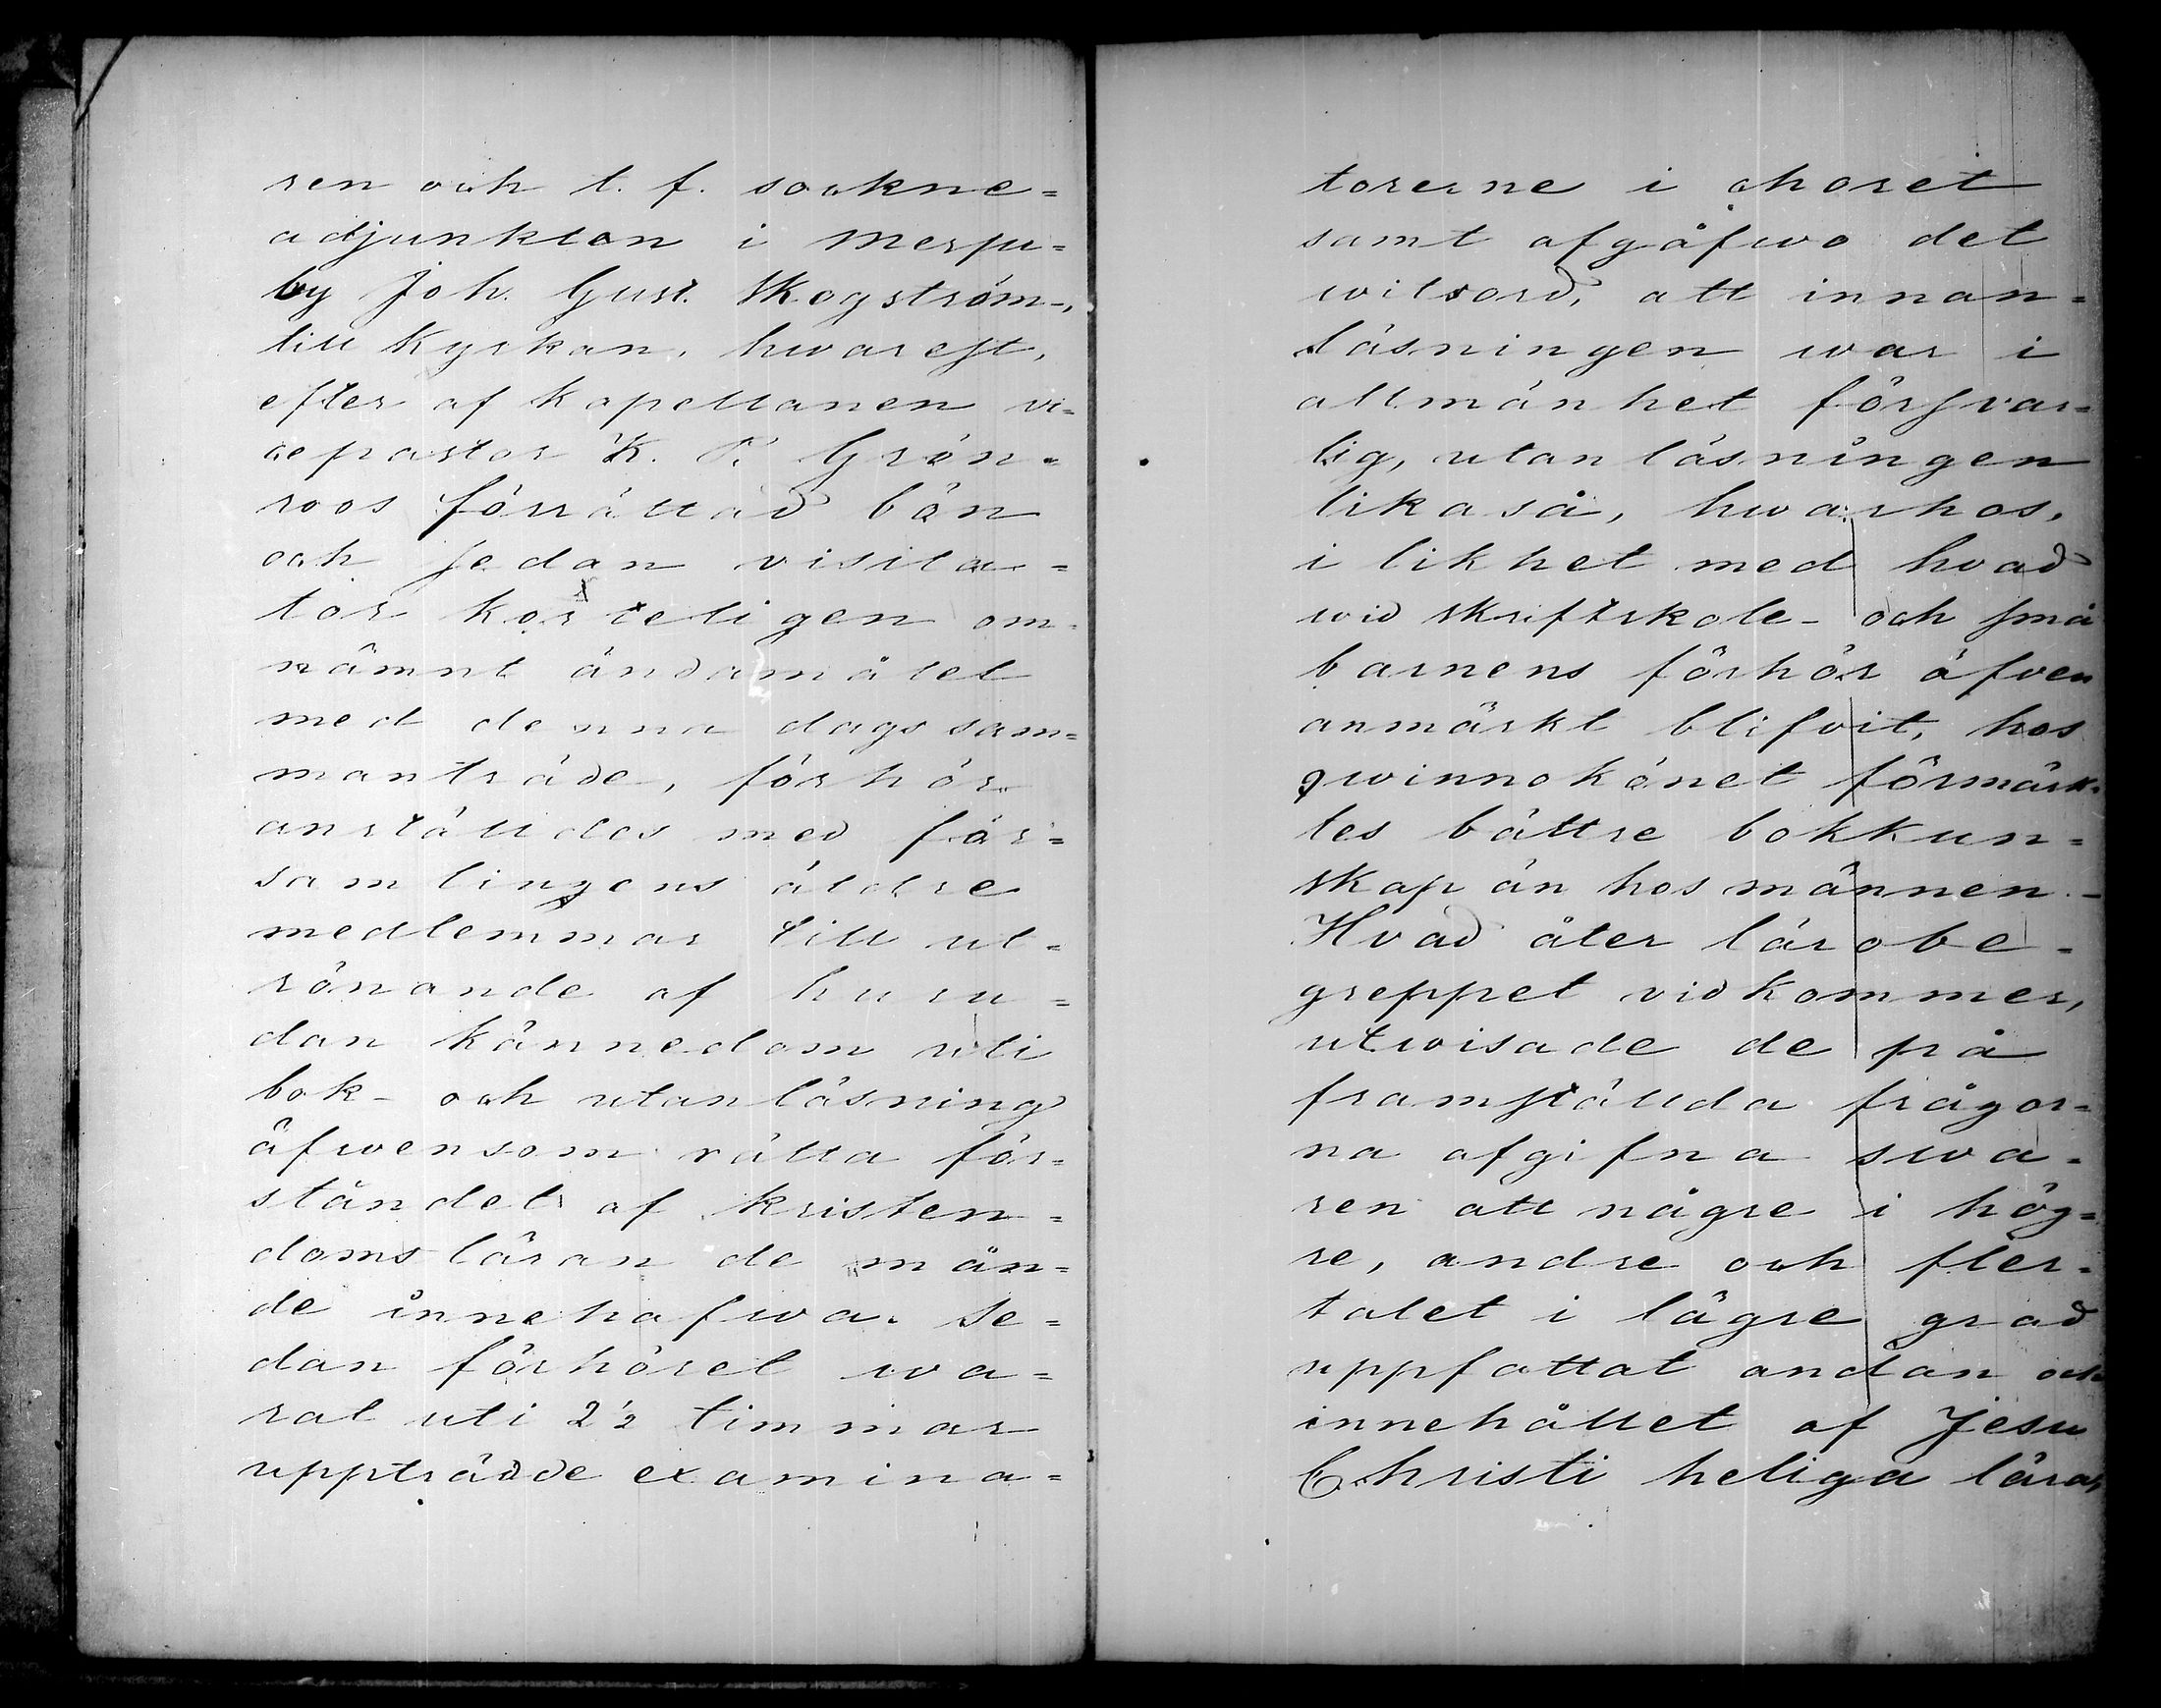 ren och t. f. sockne=
adjunkten i Merju=
by Joh. Gust. Skogström,
till Kyrkan, hvarest,
efter af Kapellanen vi=
cepastor K. R. Grön=
roos förrättad bön
och sedan visita=
tor korteligen om=
nämnt ändamålet
med denna dags sam=
manträde, förhör
anställdes med för=
samlingens äldre
medlemmar till ut=
rönande af huru=
dan kännedom uti
bok- och utanläsning
äfwensom rätta för=
ståndet af kristen=
domsläran de mån=
de innehafwa. Se=
dan förhöret wa=
rat uti 2 1/2 timmar
uppträdde examina=
torerne i choret
samt afgåfwo det
witsord, att innan=
läsningen war i
allmänhet försvar=
lig, utanläsningen
likaså, hwarhos,
i likhet med hvad
wid skriftskole- och små
barnens förhör äfven
anmärkt blifvit, hos
qwinnokönet förmärk=
tes bättre bokkun=
skap än hos männen. -
Hvad åter lärobe=
greppet vidkommer,
utwisade de på
framställda frågor=
na afgifna swa=
ren att någre i hög=
re, andre och fler=
talet i lägre grad
uppfattat andan och
innehållet af Jesu
Christi heliga lära,